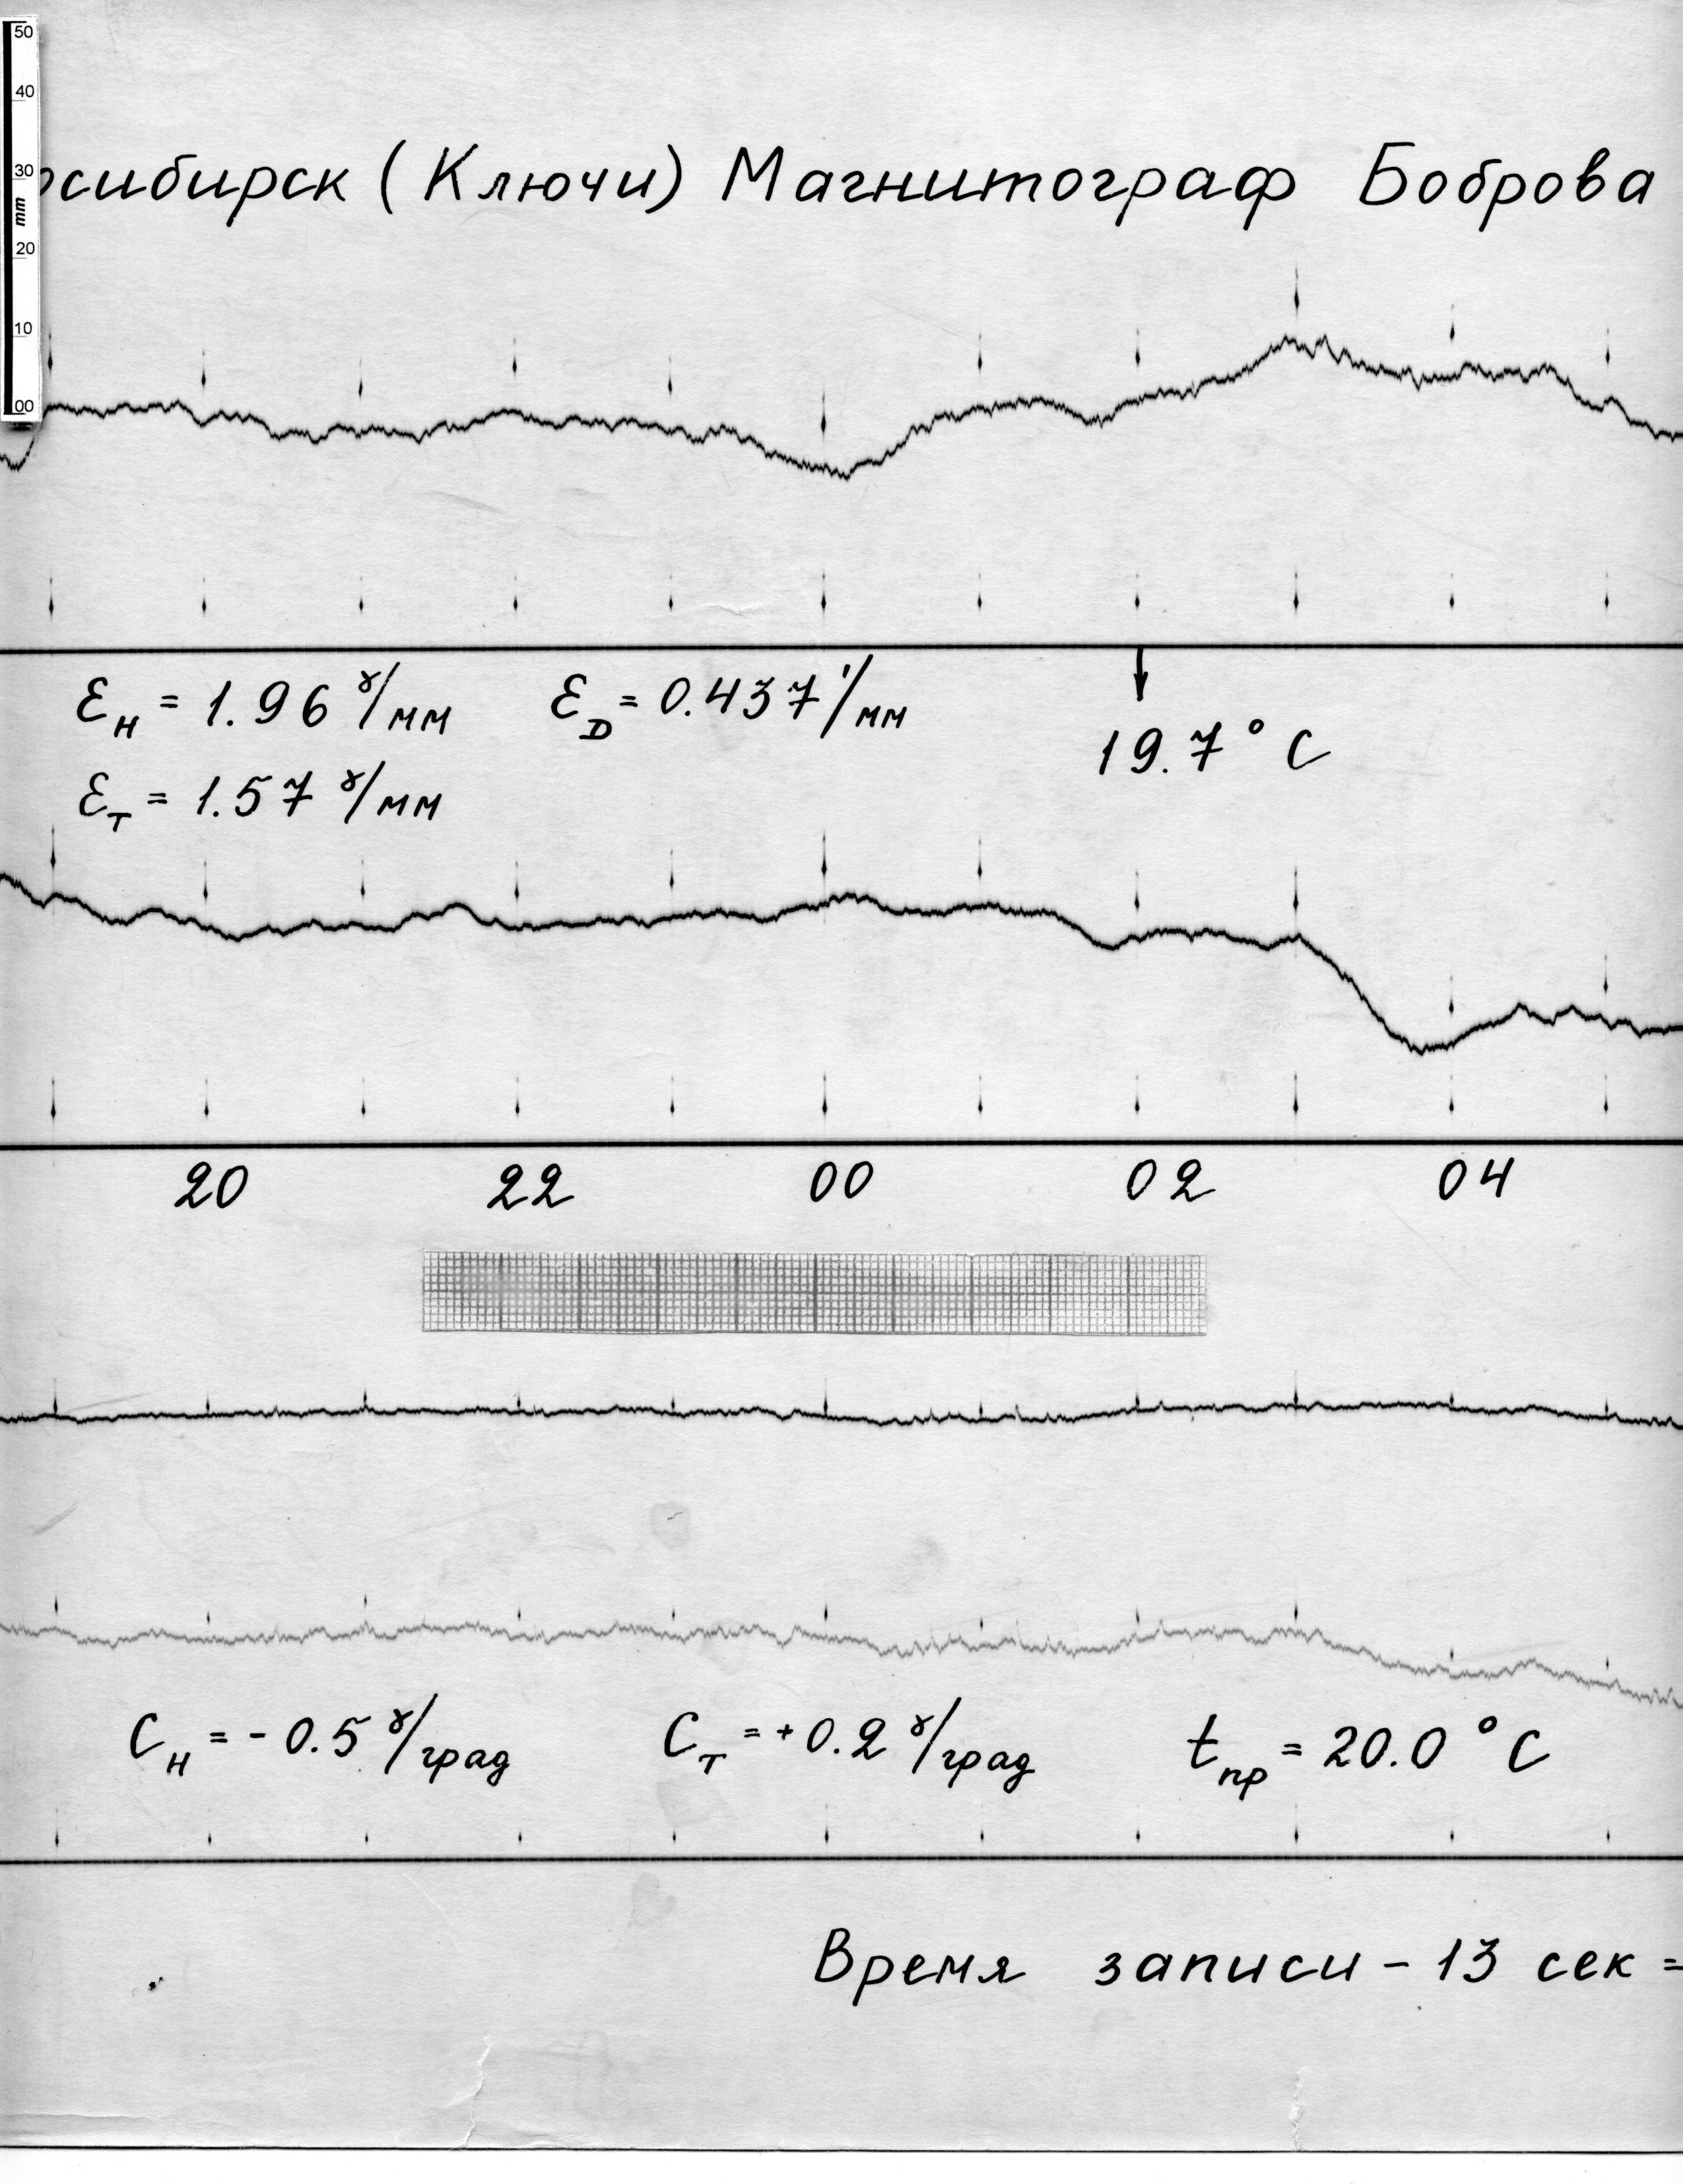 50
40
30
mm
20
10
00
осибирск (Ключи) Магнитограф Боброва
ℰH = 1.96 γ/мм ℰD = 0.437 '/мм
19.7° C
ℰT = 1.57 γ/мм
20 22 00 02 04
CH = - 0.5 γ/град CT = + 0.2 γ/град tпр = 20.0 °C
Время записи - 13 сек =